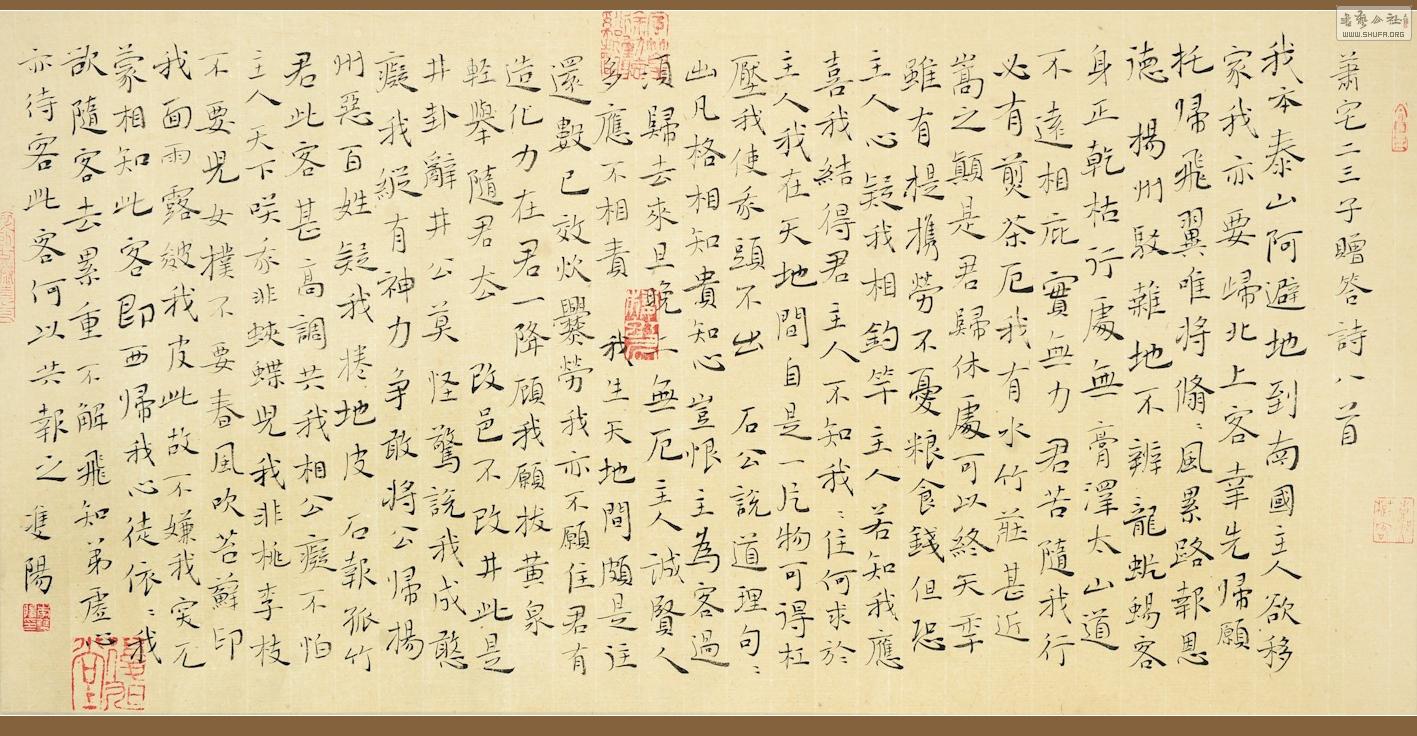 蕭宅二三子贈答詩八首
我本泰山阿避地到南國主人欲移
家我亦要歸北上客幸先歸願
托歸飛翼唯將翛〻風累路報恩
德 揚州駁雜地不辨龍蜥蜴客
身正乾枯行處無膏澤太山道
不遠相庇實無力 君苦隨我行
必有煎茶厄我有水竹莊甚近
嵩之顛是君歸休處可以終天年
雖有提攜勞不憂粮食錢但恐
主人心疑我相釣竿 主人若知我應
喜我結得君主人不知我〻住何求於
主人我在天地間自是一片物可得杠
壓我使我頭不出 石公說道理句〻
出凡格相知貴知心豈恨主為客過
須歸去來旦晚上無厄主人誠賢人
多應不相責 我生天地間頗是往
還數已效炊爨勞我亦不願住君有
造化力在君一降顧我願拔黃泉
輕舉隨君去 改邑不改井此是
井卦辭井公莫怪驚說我成憨
癡我縱有神力爭敢將公歸揚
州惡百姓疑我捲地皮 石報孤竹
君此客甚高調共我相公癡不怕
主人天下咲我非蛺蝶兒我非桃李枝
不要兒女撲不要春風吹苔蘚印
我面雨露皴我皮此故不嫌我突兀
蒙相知此客即西歸我心徒依〻我
欲隨客去累重不解飛知弟虛心
亦待客此客何以共報之 隻陽
書藝公社
WWW.SHUFA.ORG